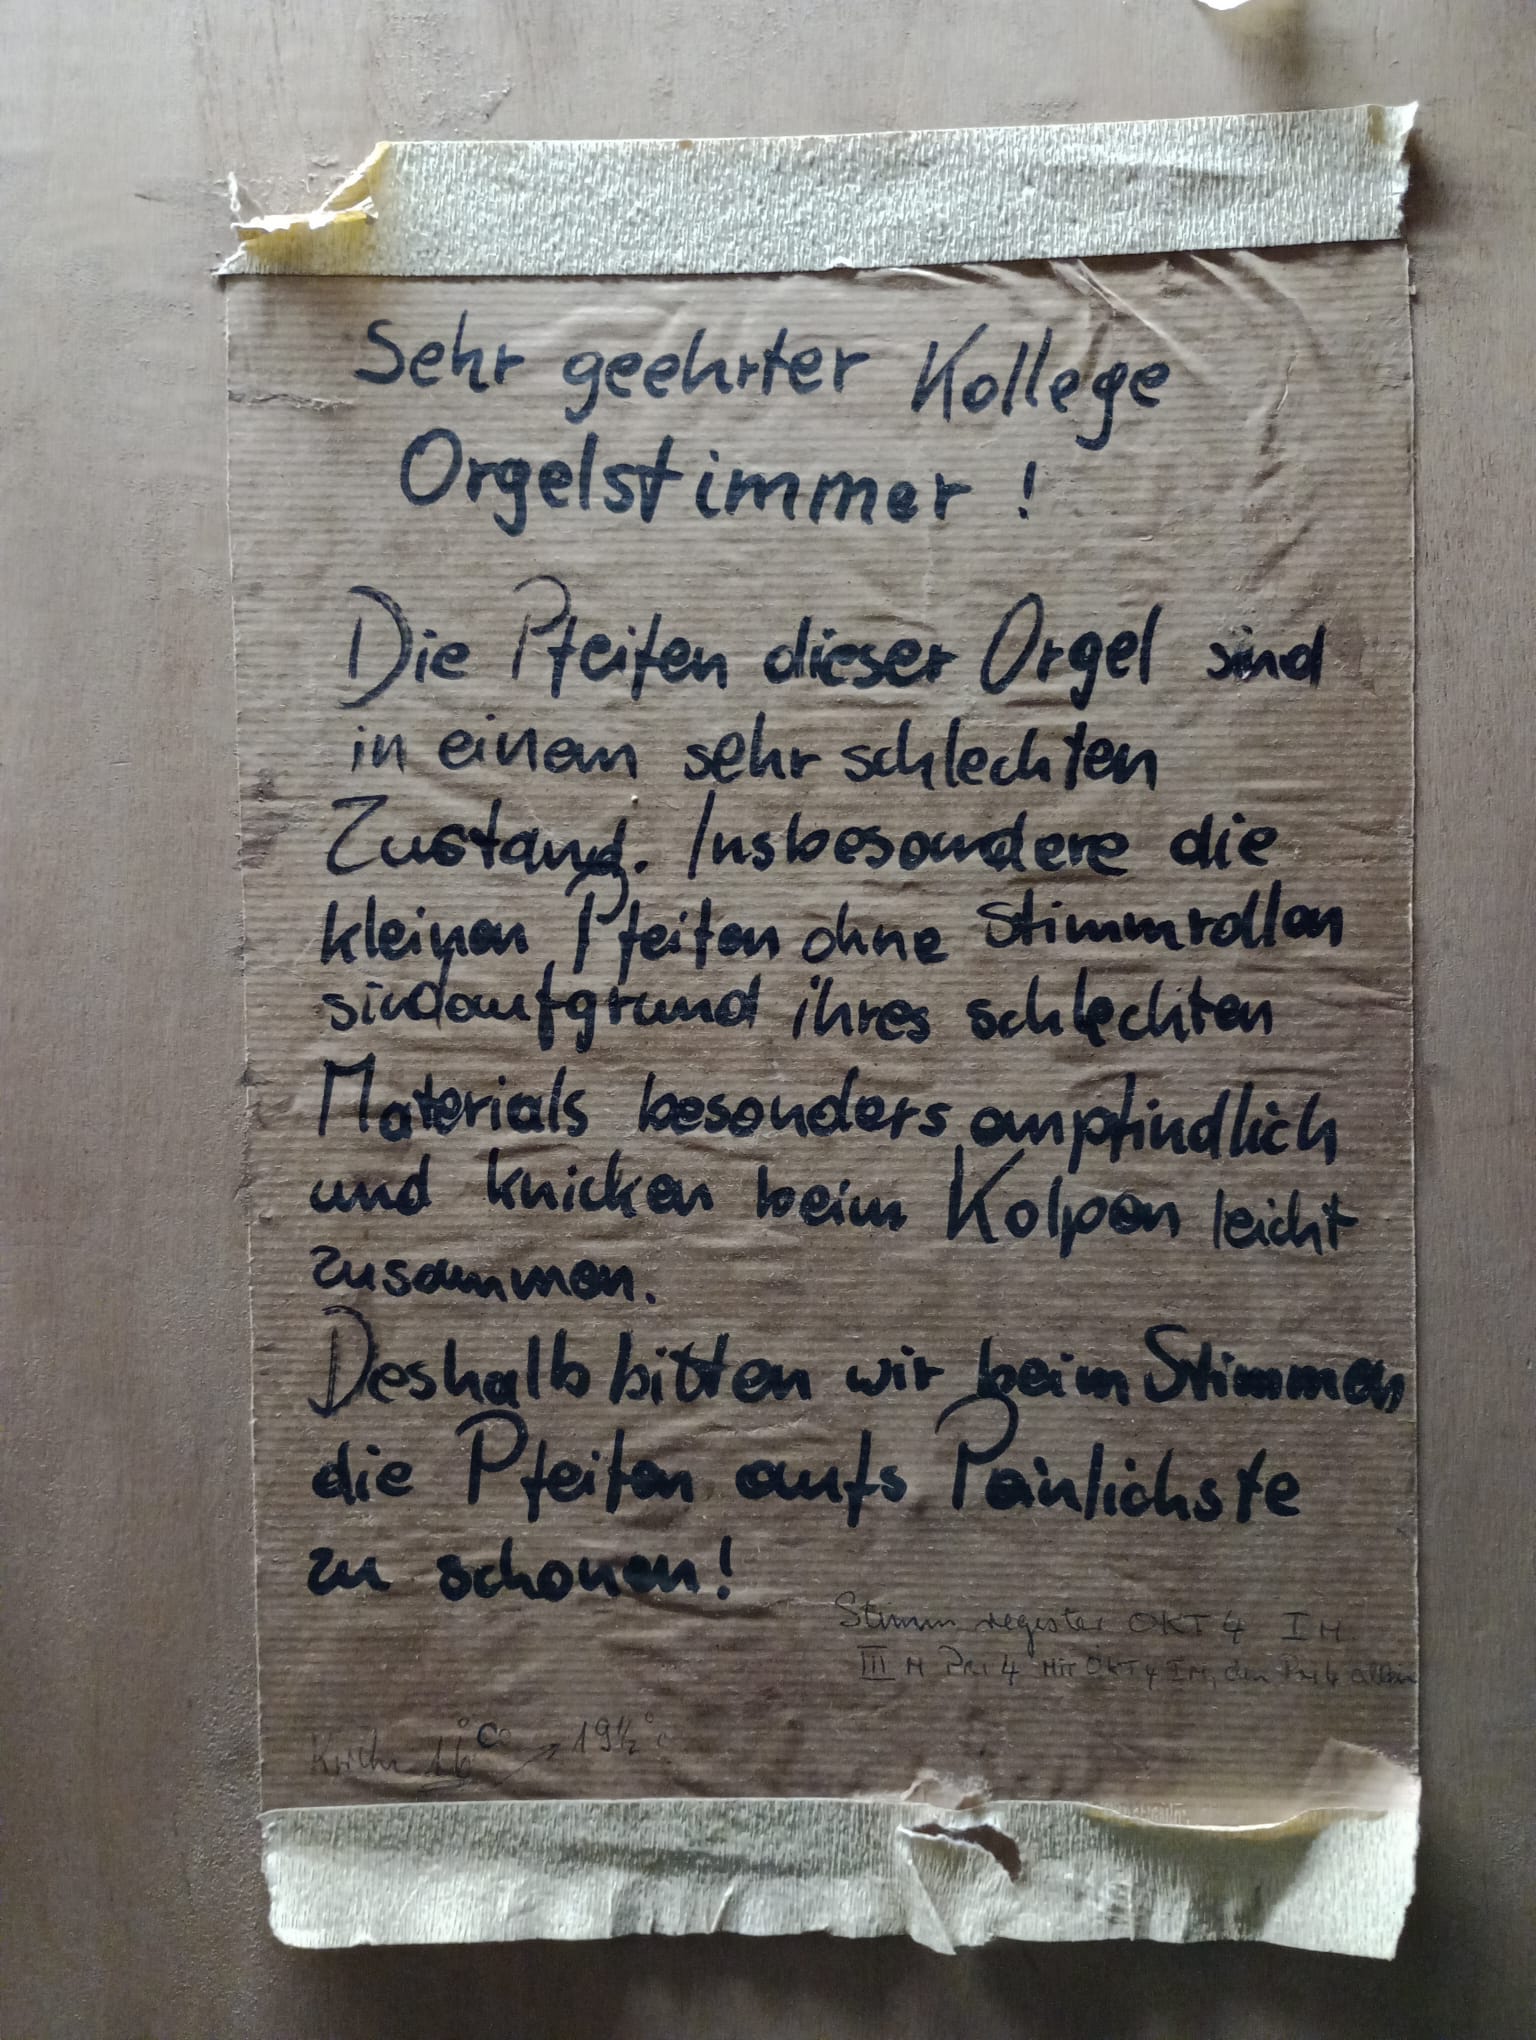 Sehr geehrter Kollege
Orgelstimmer !
Die Pfeifen dieser Orgel sind
in einem sehr schlechten
Zustand. Insbesondere die
kleinen Pfeifen ohne Stimmrollen
sind aufgrund ihres schlechten
Materials besonders empfindlich
und knicken beim Kolpen leicht
zusammen.
Deshalb bitten wir beim Stimmen
die Pfeifen aufs Peinlichste
zu schonen!
Stimmregister OKT 4 I M
III M Pri 4 mit OKT 4 I M, dann Pri 4 allein
16 °C 19½ °